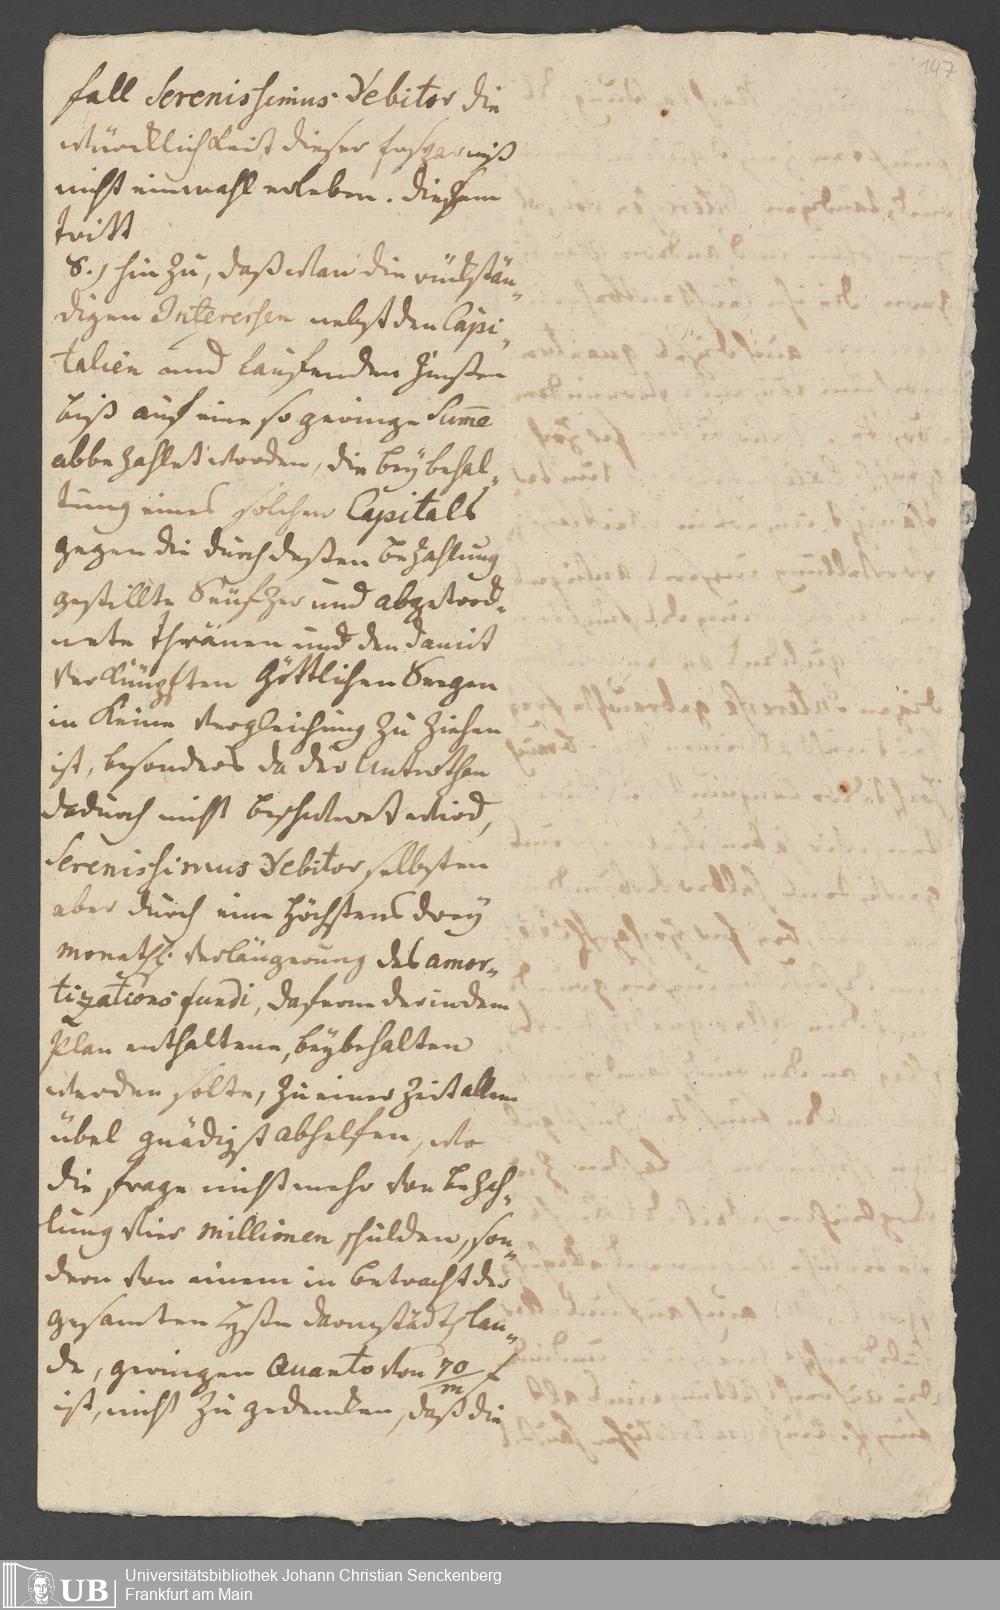 147
fall Serenissimus Debitor die
würcklichkeit dieser ersparniß
nicht einmahl erleben. diesem
tritt
8.) hin zu, daß wan die rückstän„
digen Interessen nebst den Capi„
talien und lauffenden Zinßen
biß auf eine so geringe Summe
abbezahlet worden, die beybehal„
tung eines solchen Capitals
gegen die durch deßen bezahlung
gestillte Seufzer und abgetrock„
nete thränen und den damit
verknüpften Göttlichen Seegen
in keine Vergleichung zu ziehen
ist, besonders da der
dadurch nicht beschwert wird,
Serenissimus Debitor selbsten
aber durch eine höchstens drey
monathl. verlängerung des amor„
tizations fundi, dafern der in dem
Plan enthaltene, beybehalten
werden solte, zu einer Zeit allem
übel gnädigst abhelfen, wo
die frage nicht mehr von bezah„
lung vier Millionen schulden, son„
dern von einem in betracht der
gesamten Hessen darmstädt. lan„
de, geringen Quanto von 70/m f
ist, nicht zu gedencken, daß die
UB Universitätsbibliothek Johann Christian Senckenberg
Frankfurt am Main